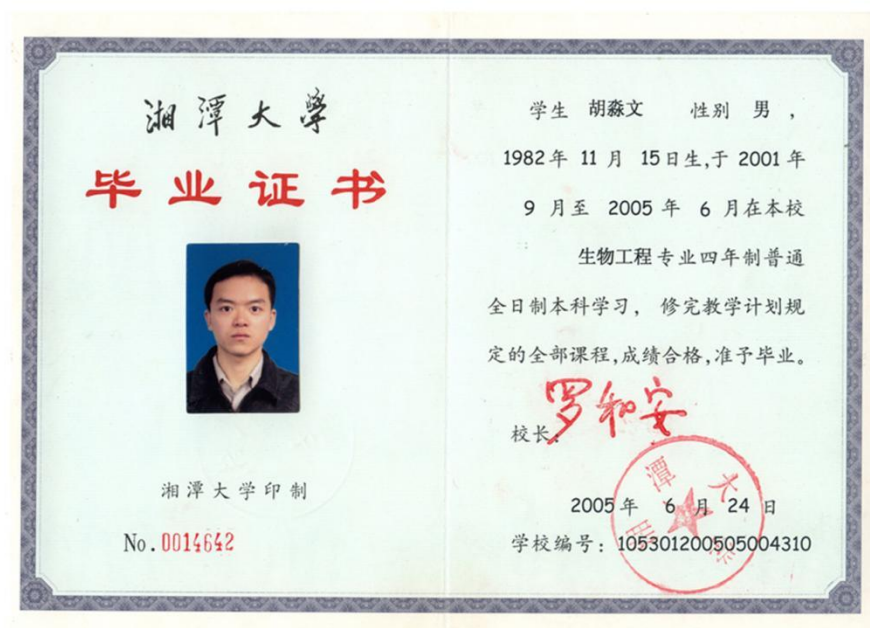 湘潭大学
毕业证书
湘潭大学印制
No.0014642
学生 胡淼文 性别 男,
1982年 11 月 15日生,于 2001 年
9 月至 2005 年 6 月在本校
生物工程专业四年制普通
全日制本科学习, 修完教学计划规
定的全部课程,成绩合格,准予毕业。
校长: 罗和安
湘潭大学
2005年 6 月 24 日
学校编号: 105301200505004310